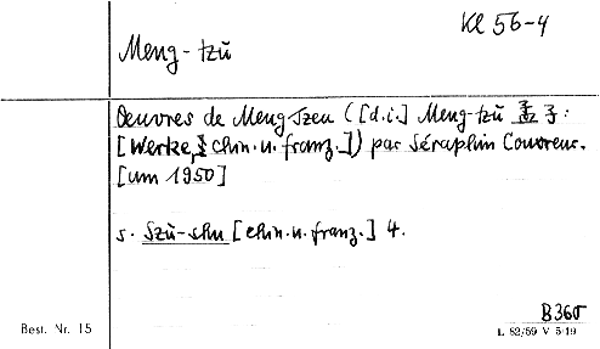 Kl 56-4
Meng-tzŭ
Oeuvres de Meng Tzeu ([d.i.] Meng-tzŭ 孟子:
[Werke, chin. u. franz.]) par Séraphin Couvreur.
[um 1950]
s. Szŭ-shu [chin. u. franz.] 4.
B 360
Best. Nr. 15
L 52/59 V 5 19